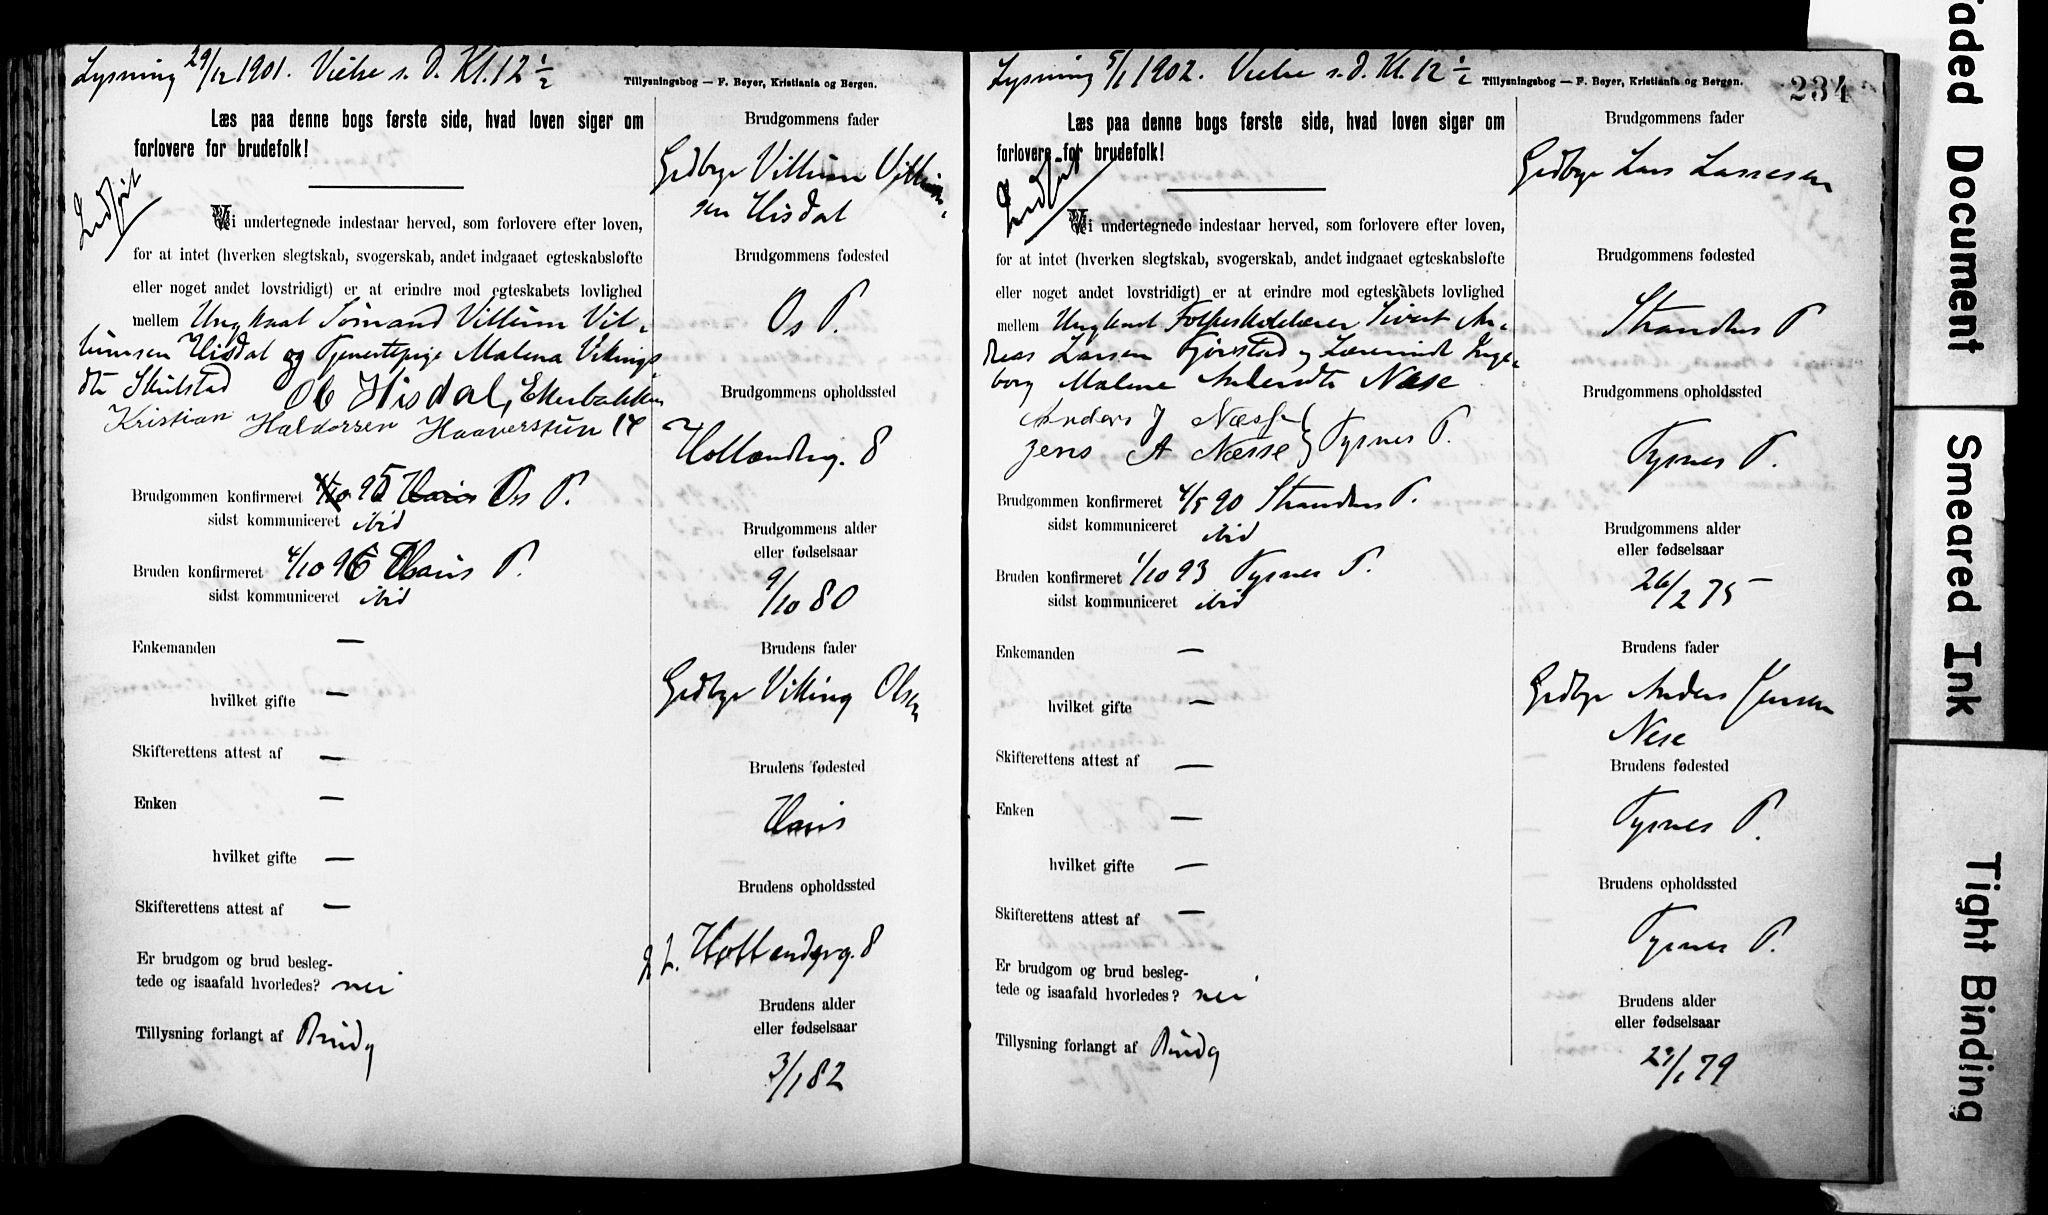 Lysning 29/12 1901. Vielse s. D. Kl. 12 ½
Tillysningsbog — F. Beyer, Kristiania og Bergen.
Læs paa denne bogs første side, hvad loven siger om
forlovere for brudefolk!
Indført
Vi undertegnede indestaar herved, som forlovere efter loven,
for at intet (hverken slegtskab, svogerskab, andet indgaaet egteskabsløfte
eller noget andet lovstridigt) er at erindre mod egteskabets lovlighed
mellem Ungkarl Sømand Villum Vil-
lumsen Hisdal og Tjenestepige Malena Vikings
dtr Skulstad
Ole Hisdal,
Kristian Haldorsen Haaverstun 14
Brudgommen konfirmeret 95 Os P.
sidst kommuniceret
Bruden konfirmeret 4/10 96 Haus P.
sidst kommuniceret
Enkemanden —
hvilket gifte —
Skifterettens attest af —
Enken —
hvilket gifte —
Skifterettens attest af —
Er brudgom og brud besleg-
tede og isaafald hvorledes? nei
Tillysning forlangt af Brudg
Brudgommens fader
Grdbr Villum Villum-
sen Hisdal
Brudgommens fødested
Os P.
Brudgommens opholdssted
Hollænderg. 8
Brudgommens alder
eller fødselsaar
9/10 80
Brudens fader
Grdbr Viking Olsen
Brudens fødested
Haus
Brudens opholdssted
Hollenderg. 8
Brudens alder
eller fødselsaar
3/1 82
Lysning 5/1 1902. Vielse s. d. Kl. 12 ½
Tillysningsbog — F. Beyer, Kristiania og Bergen.
234
Læs paa denne bogs første side, hvad loven siger om
forlovere for brudefolk!
Indført
Vi undertegnede indestaar herved, som forlovere efter loven,
for at intet (hverken slegtskab, svogerskab, andet indgaaet egteskabsløfte
eller noget andet lovstridigt) er at erindre mod egteskabets lovlighed
mellem Ungkarl Folkeskolelærer Sivert An-
dreas Larsen og Lærerinde Inge-
borg Malene Andersdtr Nese
Anders J Næsse
Jens A Næsse } Tysnes P.
Brudgommen konfirmeret 4/5 90 P.
sidst kommuniceret
Bruden konfirmeret 1/10 93 Tysnes P.
sidst kommuniceret
Enkemanden —
hvilket gifte —
Skifterettens attest af —
Enken —
hvilket gifte —
Skifterettens attest af —
Er brudgom og brud besleg-
tede og isaafald hvorledes? nei
Tillysning forlangt af Brudg
Brudgommens fader
Grdbr Lars Larsen
Brudgommens fødested
P
Brudgommens opholdssted
Tysnes P.
Brudgommens alder
eller fødselsaar
26/2 75
Brudens fader
Grdbr Anders Jensen
Nese
Brudens fødested
Tysnes P.
Brudens opholdssted
Tysnes P.
Brudens alder
eller fødselsaar
/1 79
Faded Document
Smeared Ink
Tight Binding